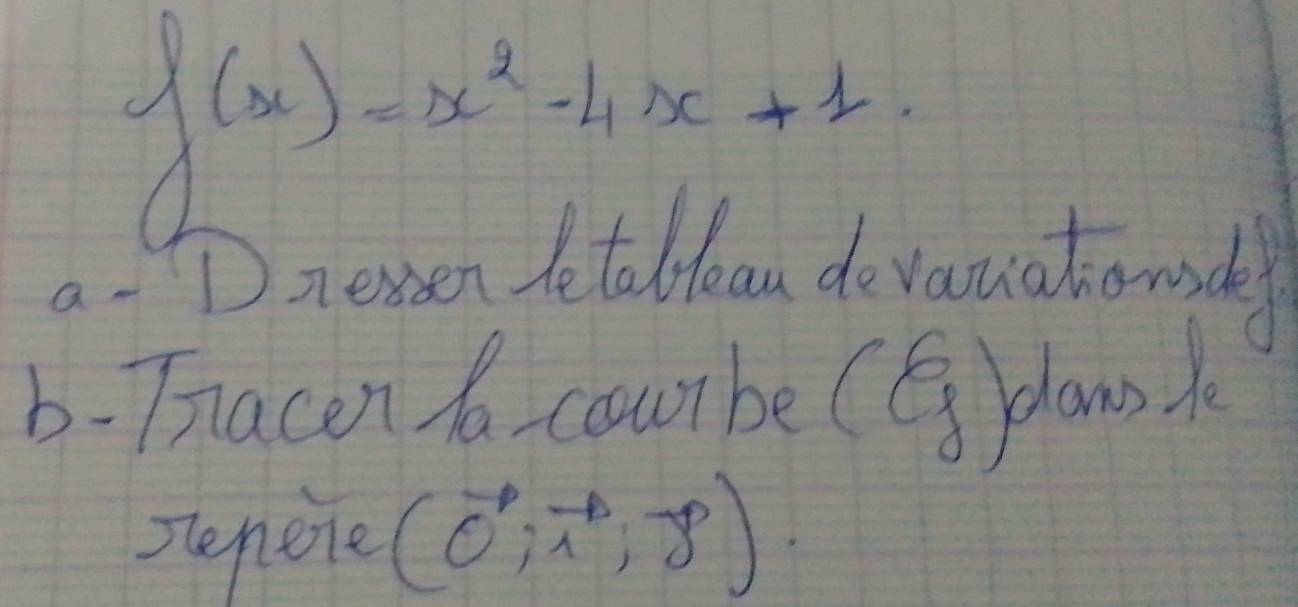 f(x) = x² - 4x + 1.
a - Dresser le tableau de variations de f.
b - Tracer la courbe (Cf) dans le
repère (O⃗; i⃗; j⃗).